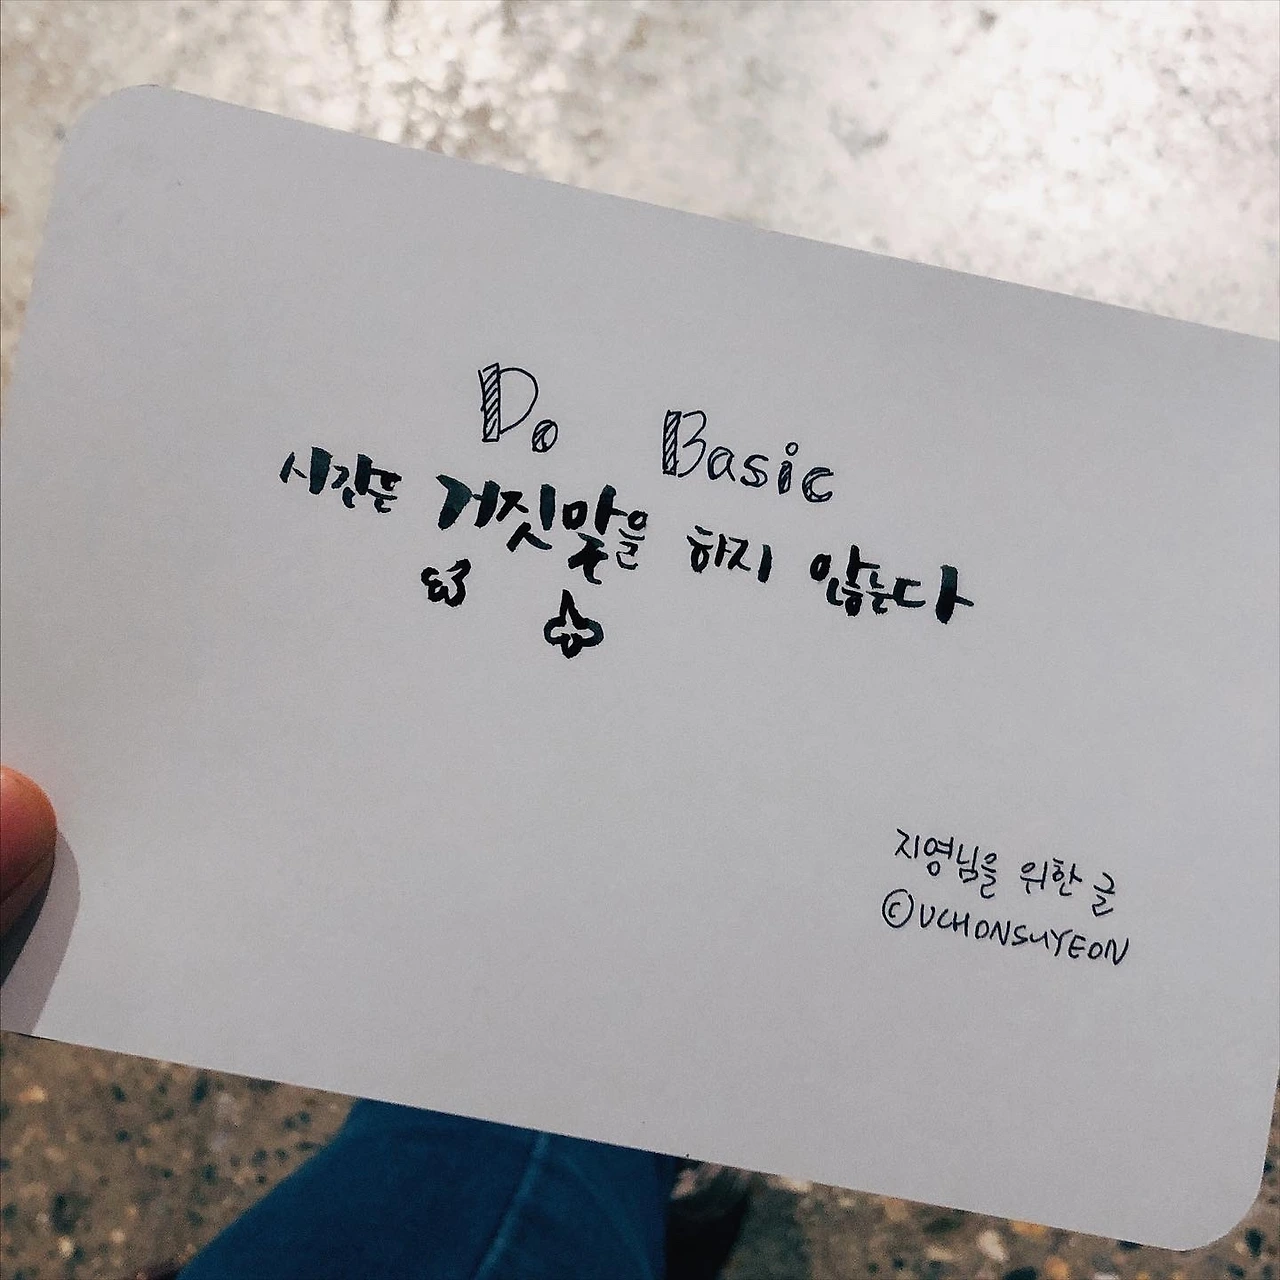 Do Basic
시간은 거짓말을 하지 않는다
지영님을 위한 글
©UCHONSUYEON